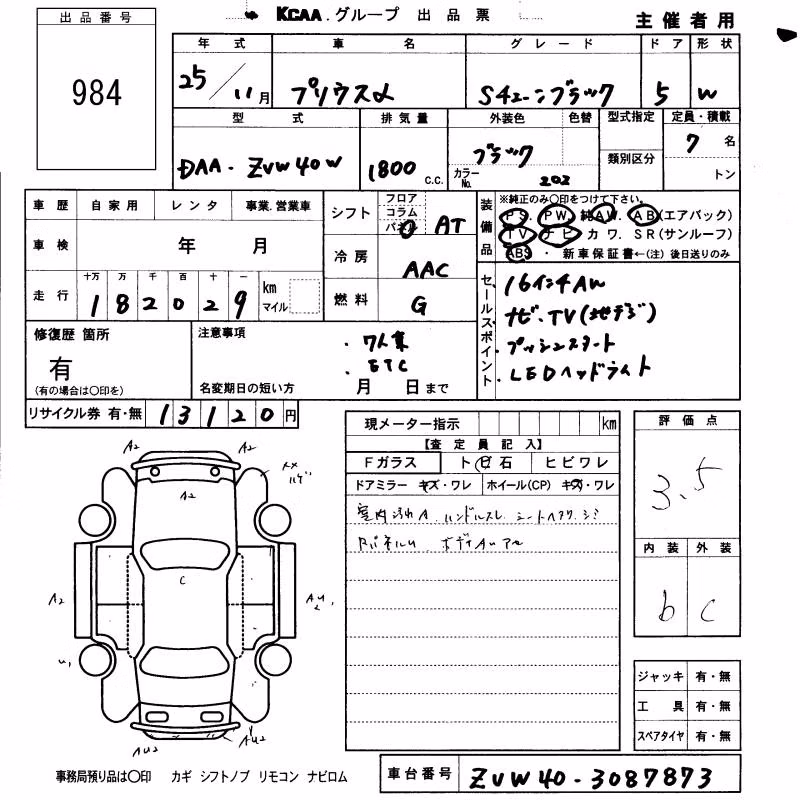 KCAA.グループ 出品票
主催者用
出品番号
984
年式 車名 グレード ドア 形状
25/11月 プリウスα Sチューンブラック 5 W
型式 排気量 外装色 色替 型式指定 定員・積載
DAA-ZVW40W 1800c.c. ブラック 7名
カラーNo. 202 類別区分 トン
車歴 自家用 レンタ 事業.営業車
車検 年 月
走行 十万 万 千 百 十 一
182029 km マイル
シフト フロア コラム パネル AT
冷房 AAC
燃料 G
装備品 ※純正のみ〇印をつけて下さい。
PS. PW. 純AW. AB(エアバック)
TV ナビ カワ. SR(サンルーフ)
ABS ・ 新車保証書←(注) 後日送りのみ
セールスポイント
16インチAW
ナビ.TV(地デジ)
・プッシュスタート
・LEDヘッドライト
修復歴 箇所
有
(有の場合は〇印を)
注意事項
・7人乗
・ETC
名変期日の短い方 月 日まで
リサイクル券 有・無 13120円
現メーター指示 km
【査定員記入】
Fガラス トビ石 ヒビワレ
ドアミラー キズ・ワレ ホイール(CP) キズ・ワレ
室内汚れA ハンドルスレ シートヘタリ.シミ
評価点
3.5
内装 外装
b c
A2 A2
A2
C
A2
U1
AU2 AU2
ジャッキ 有・無
工具 有・無
スペアタイヤ 有・無
事務局預り品は〇印 カギ シフトノブ リモコン ナビロム
車台番号 ZVW40-3087873